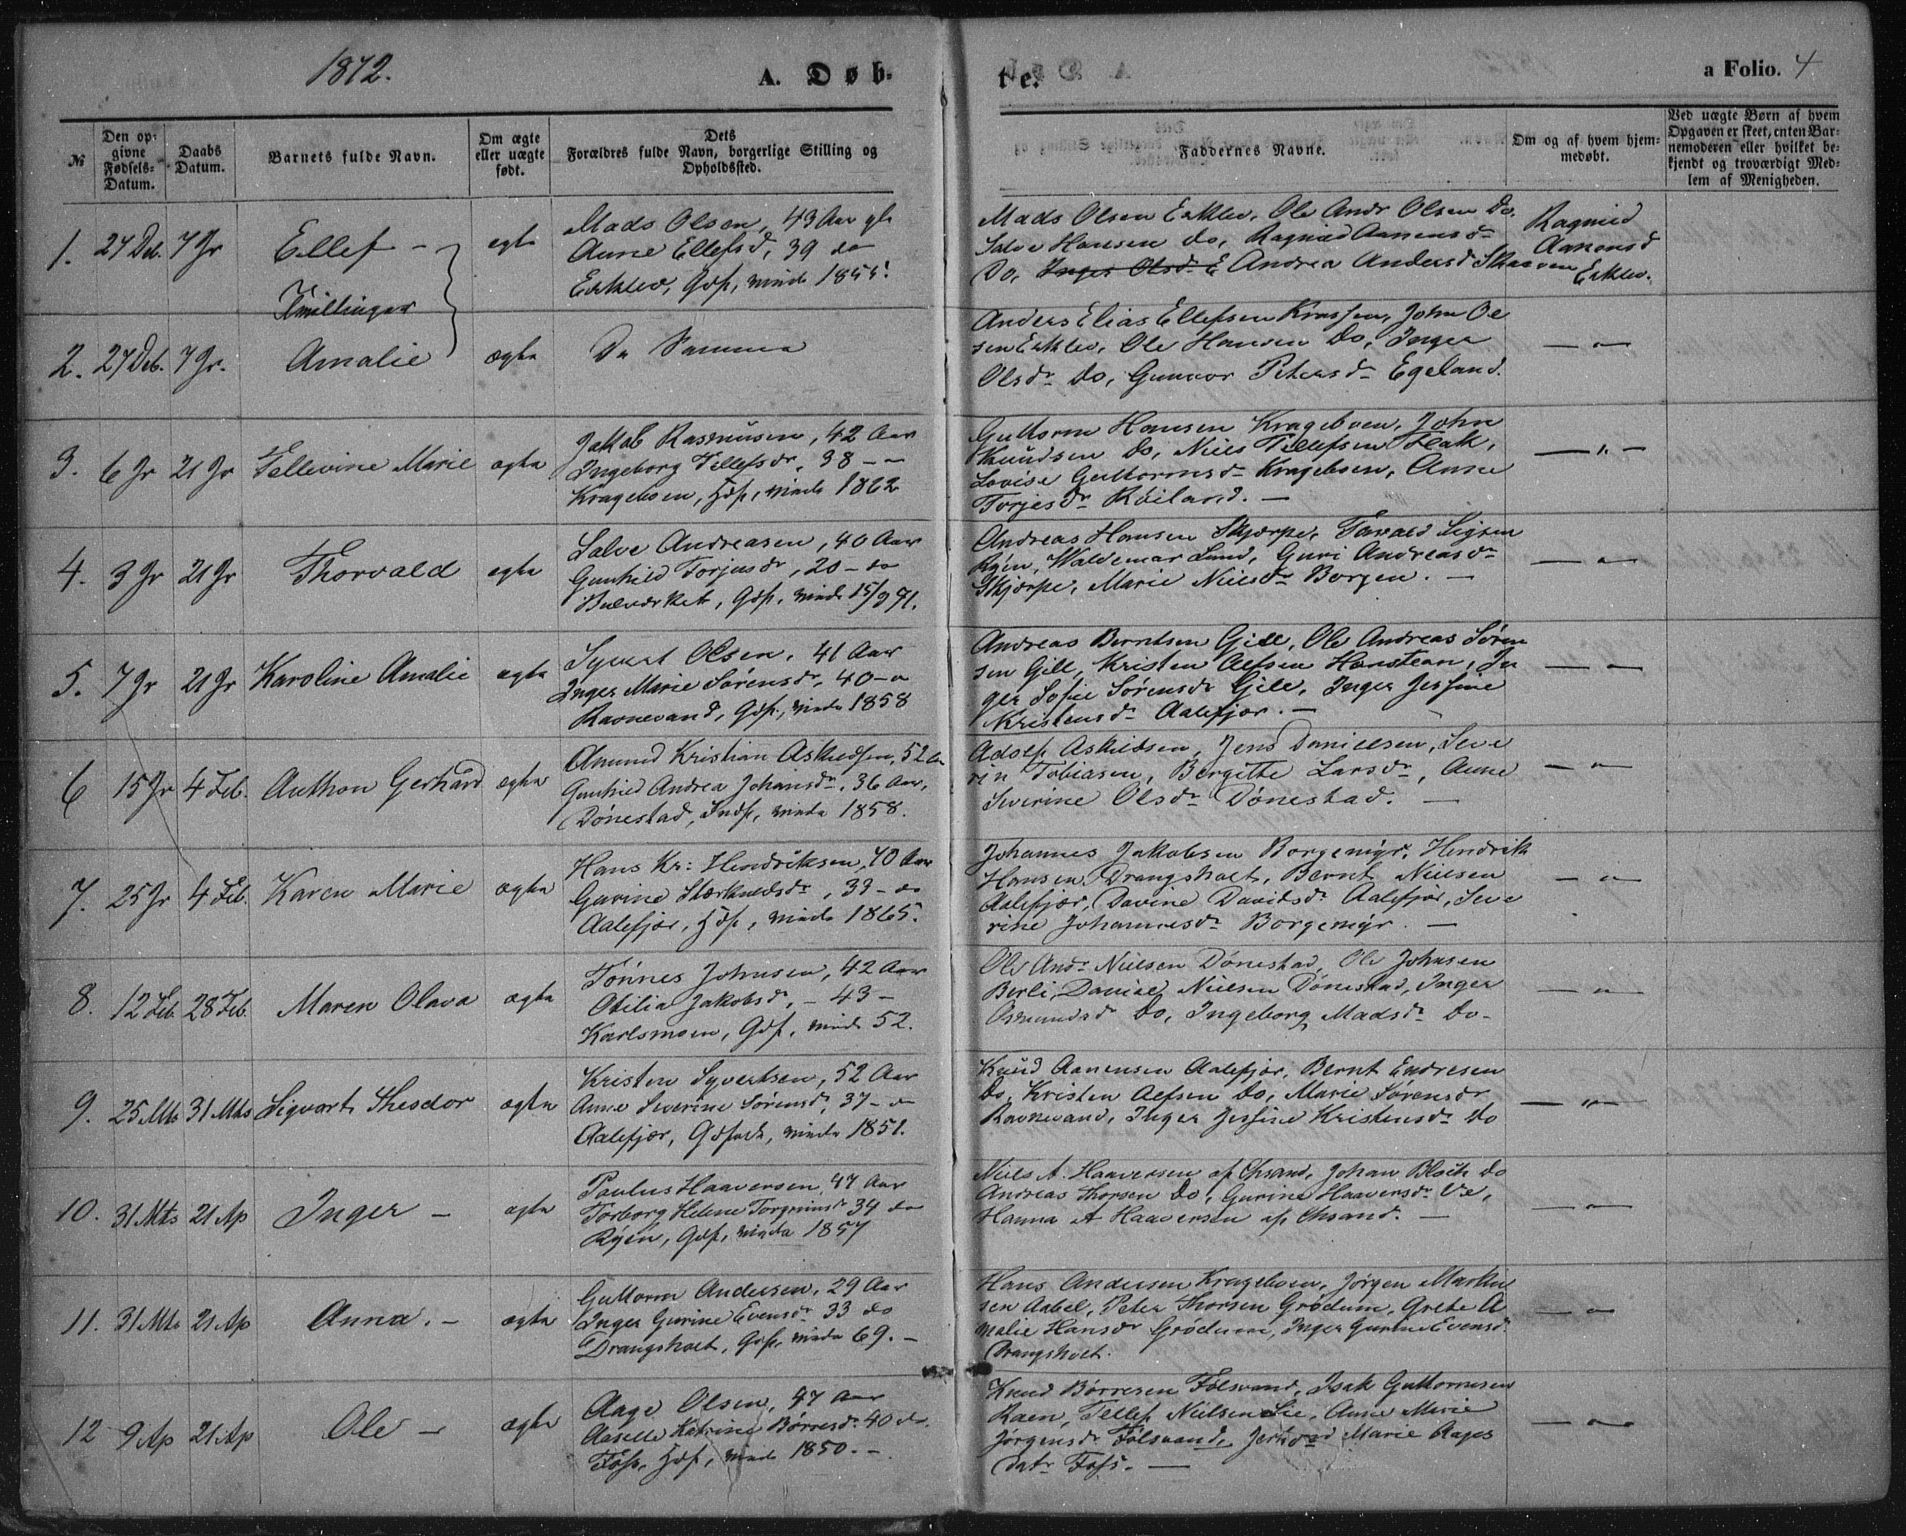 1872.
A. Døb-
te.
a Folio. 4
№
Den op-
givne
Fødsels-
Datum.
Daabs
Datum.
Barnets fulde Navn.
Om ægte
eller uægte
født.
Dets
Forældres fulde Navn, borgerlige Stilling og
Opholdssted.
Faddernes Navne.
Om og af hvem hjem-
medøbt.
Ved uægte Børn af hvem
Opgaven er skeet, enten Bar-
nemoderen eller hvilket be-
kjendt og troværdigt Med-
lem af Menigheden.
1. 27 Deb. 7 Jr Ellef – egte
Mads Olsen, 43 Aar gl
Anne Ellefsd, 39 do
Eeklev, Gdf, 1855
Mads Olsen Eeklev, Ole Andr Olsen Do,
Salve Hansen do, Ragnild Aanensdr
Do, Inger Olsd. E Andrea Andersd Skaaven
Ragnild
Aanensd
Eeklev.
Tvillinger
2. 27 Deb. 7 Jr. Amalie ægte
De Samme
Anders Elias Ellefsen Krossen, John Ol
sen Eeklev, Ole Hansen Do, Inger
Olsdr Do, Gunvor Petersdr Egeland.
— " —
3. 6 Jr 21 Jr Tellevine Marie ægte
Jakob Rasmusen, 42 Aar
Ingeborg Tellefsdr, 38 – –
Krageboen, Hdf, 1862
Guttorm Hansen Krageboen, John
Knudsen Do, Niels Tellefsen Flak,
Lovise Guttormsdr Krageboen, Anne
Torjesdr Røiland. –
— " —
4. 3 Jr 21 Jr Thorvald egte
Salve Andreasen, 40 Aar
Gunhild Torjusdr, 20 – do
Bulværket, Gdf, 15/9 71.
Andreas Hansen Skjærpe, Tarald Sigsen
Ryen, Waldemar Lund, Guri Andreasdr
Skjærpe, Marie Nielsdr Borgen. –
— " —
5. 7 Jr 21 Jr Karoline Amalie ægte
Syvert Olsen, 41 Aar
Inger Marie Sørensdr, 40 – "
Ravnevand, Gdf, 1858
Andreas Berntsen Gill, Ole Andreas Søren
sen Gill, Kristen Alfsen Haustean, In
ger Sofie Sørensdr Gill, Inger Jessine
Kristensdr Aalefjær. –
— " —
6 15 Jr 4 Feb. Anthon Gerhard ægte
Amund Kristian Askildsen, 52
Gunhild Andrea Johansdr, 36 Aar,
Dønestad, Indf, 1858.
Adolf Askildsen, Jens Danielsen, Seve
rin Tobiasen, Bergitte Larsdr, Anne
Severine Olsdr Dønestad. –
— " —
7. 25 Jr 4 Feb. Karen Marie ægte
Hans Kr: Hendriksen, 40 Aar
Gurine Stærkildsdr, 39 – do
Aalefjær, Hdf, 1865.
Johannes Jakobsen Borgemyr, Hendrik
Hansen Drangsholt, Bernt Nielsen
Aalefjær, Davine Davidsdr Aalefjær, Seve
rine Johannesdr Borgemyr. –
— " —
8. 12 Feb. 28 Feb. Maren Olava ægte
Tønnes Johnsen, 42 Aar
Otilia Jakobsd, – 43 –
Karlsmoen, Gdf, 52.
Ole Andr Nielsen Dønestad, Ole Johnsen
Berli, Daniel Nielsen Dønestad, Inger
Osmundsd Do, Ingeborg Madsdr Do –
— " —
9. 25 Mts 31 Mts Sigvart Thedor ægte
Kristen Syvertsen, 52 Aar
Anne Severine Sørensdr, 37 – do
Aalefjær, 1851.
Knud Aanensen Aalefjær, Bernt Endresen
Do, Kristen Alfsen Do, Marie Sørensdr
Ravnevand, Inger Jessine Kristensdr Do
— " —
10. 31 Mts 21 Ap Inger – ægte
Paulus Haaversen, 47 Aar
Torborg Helene Torgrimsdr 34 do
Ryen, Gdf, 1857
Niels A. Haaversen af Chrsand, Johan Block do
Andreas Thorsen Do, Gurine Haaversdr Ve,
Hanna A Haaversen af Chrsand. –
— " —
11. 31 Mts 21 Ap Anna. – ægte
Guttorm Andersen, 29 Aar
Inger Gurine Evensdr 33 do
Drangsholt, Gdf, 69. –
Hans Andersen Krageboen, Jørgen Marku
sen Aabel, Peter Thorsen Grødum, Grete A
malie Hansdr Grødum, Inger Gurine Evensd.
Drangsholt.
— " —
12 9 Ap 21 Ap Ole – ægte
Aage Olsen, 47 Aar
Aaselle Katrine Børresdr 40 do.
Foss, Hdf, 1850. –
Knud Børresen Følsvand, Isak Guttormsen
Raen, Tellef Nielsen Lie, Anne Marie
Jørgensdr Følsvand, Marie Aages
datr Foss. –
— " —